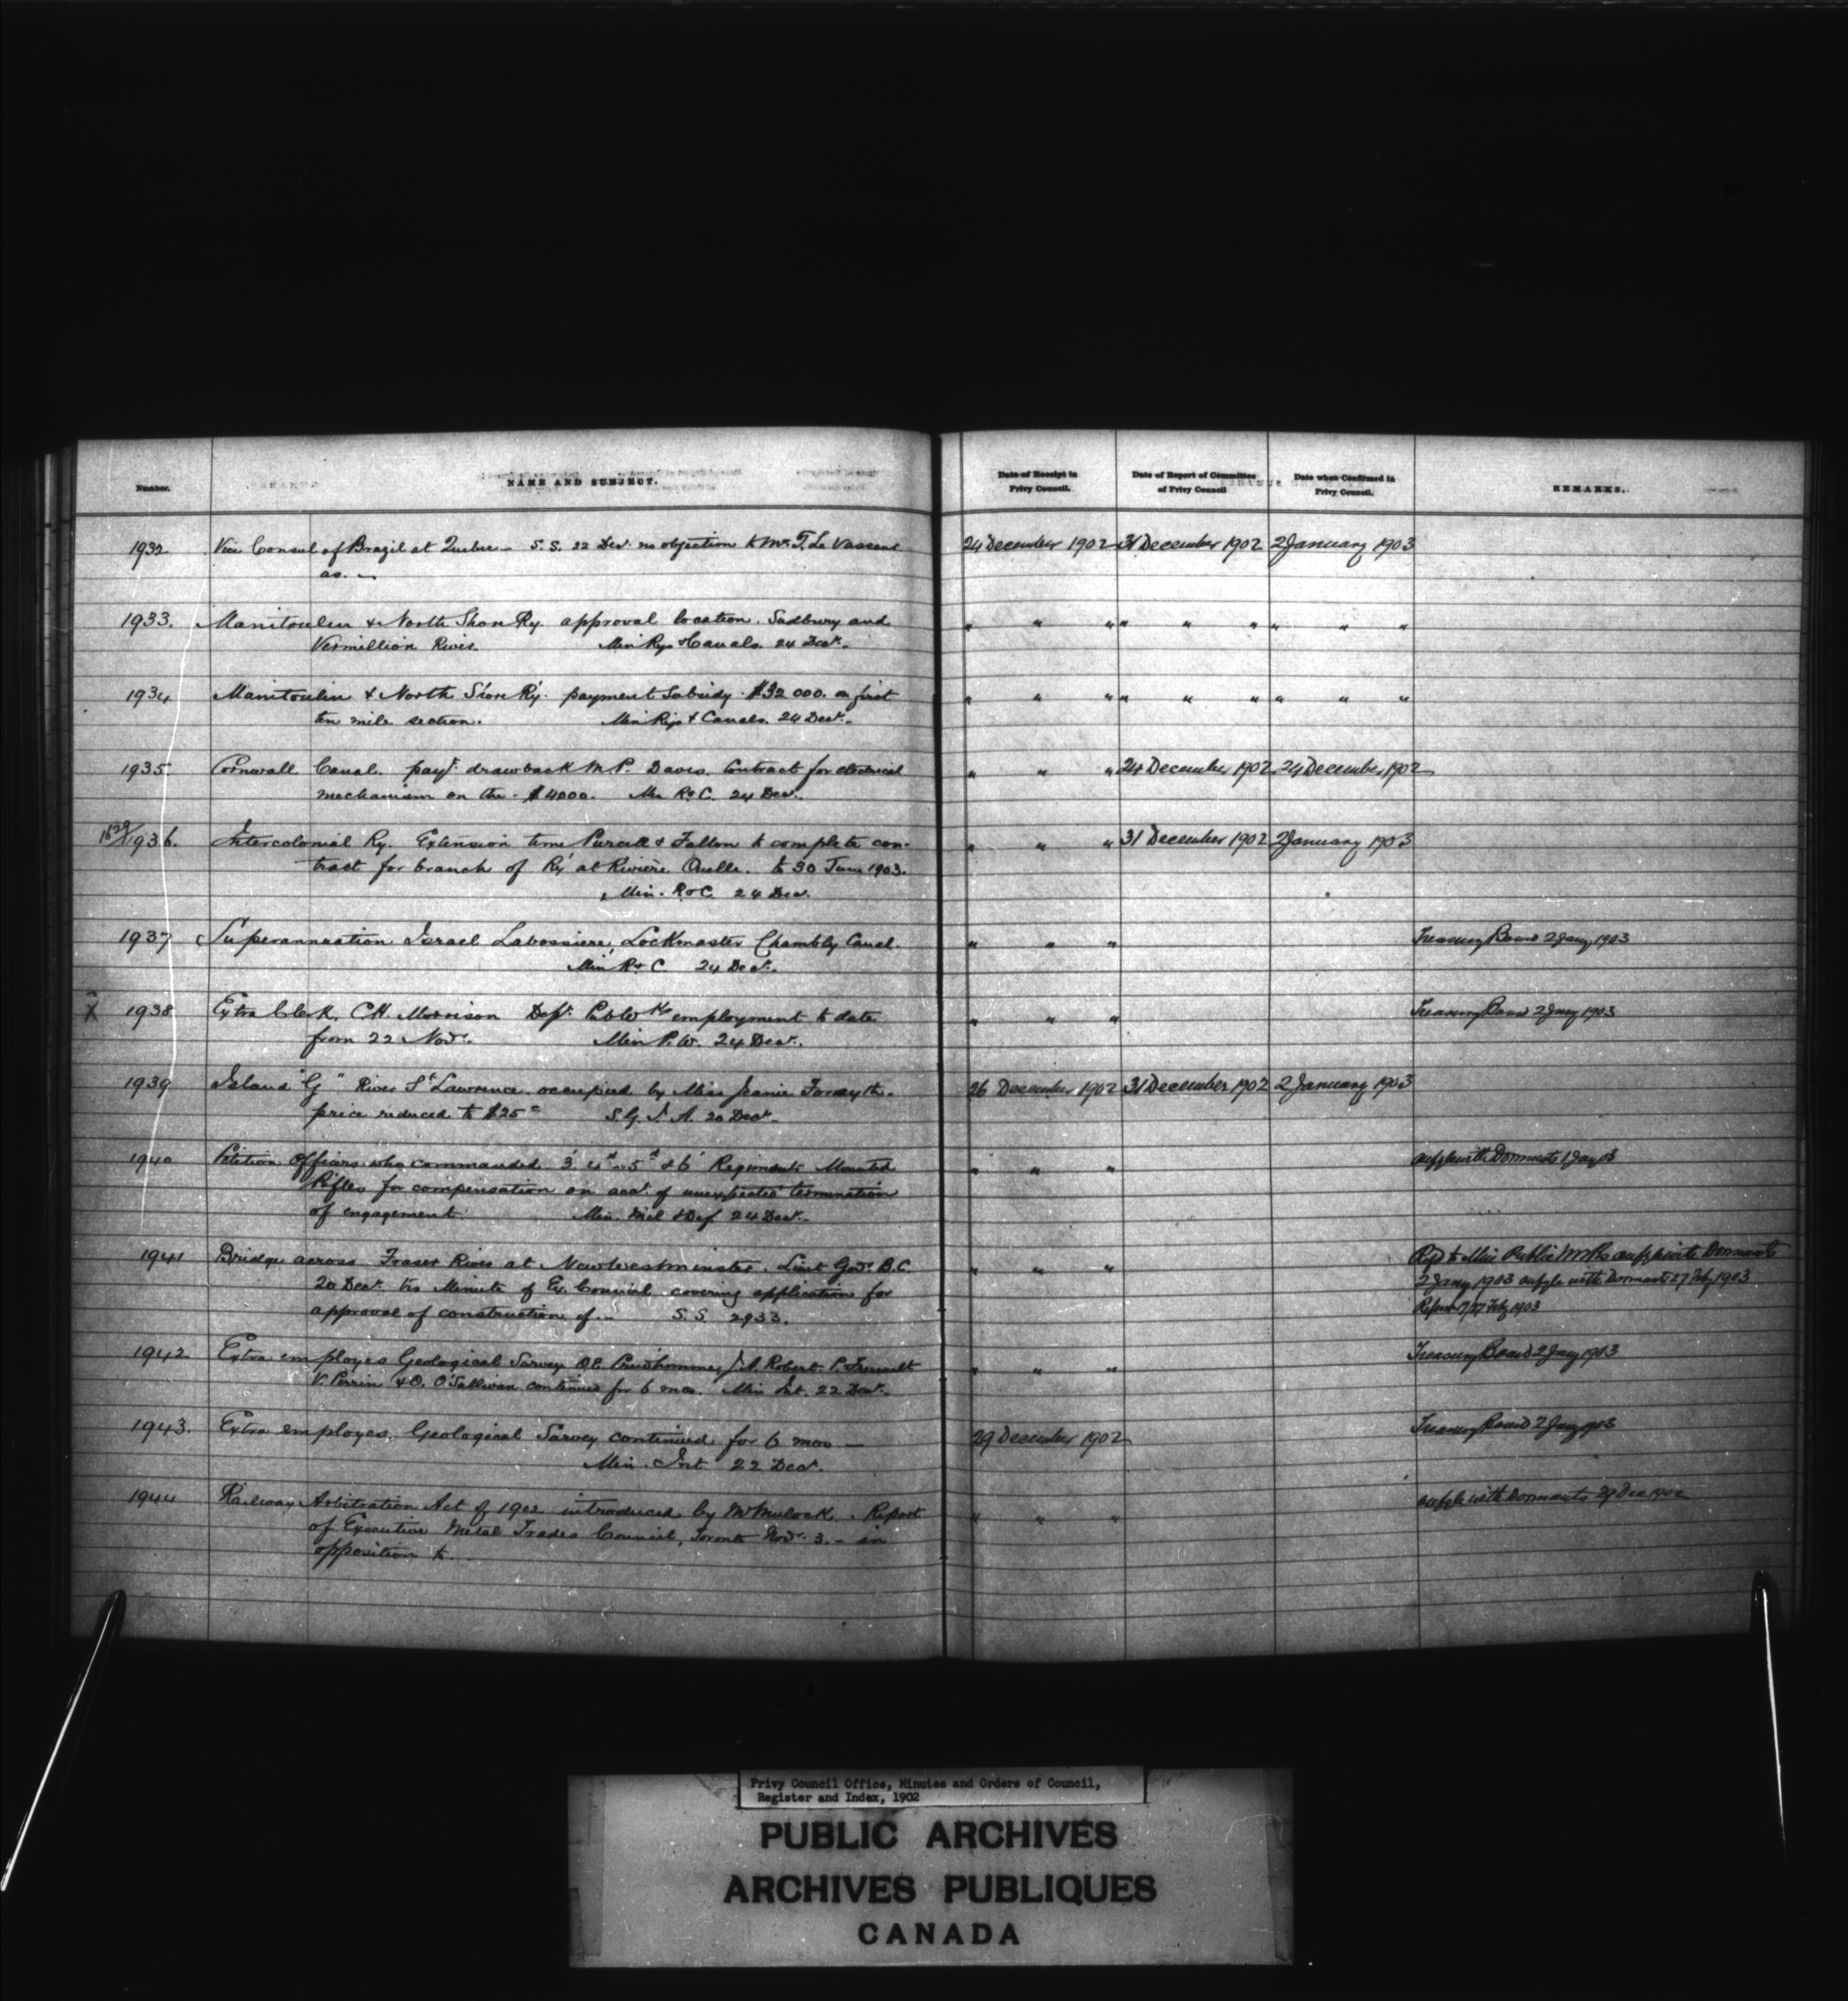 Number.
NAME AND SUBJECT.
Date of Receipt in Privy Council.
Date of Report of Committee of Privy Council
Date when Confirmed in Privy Council.
REMARKS.
1932 Vice Consul of Brazil at Quebec - S.S. 22 Decr. no objection to Mr. T. Le Vasseur 24 December 1902 31 December 1902 2 January 1903
as. -
1933. Manitoulin & North Shore Ry. approval location. Sudbury and " " " " " " " " "
Vermillion River. Min Rys & Canals. 24 Decr.
1934 Manitoulin & North Shore Ry. payment Subsidy $32 000. on first " " " " " " " " "
ten mile section. Min Rys & Canals. 24 Decr.
1935. Cornwall Canal. payt. drawback M.P. Davis. Contract for electrical " " " 24 December 1902 24 December 1902
mechanism on the - $4000. Min R & C. 24 Decr.
1629/1936. Intercolonial Ry. Extension time Purcell & Fallon to complete con- " " " 31 December 1902 2 January 1903
tract for branch of Ry at Rivière Ouelle. to 30 June 1903.
Min. R & C. 24 Decr.
1937 Superannuation Israel Labossiere, Lockmaster Chambly Canal. " " " Treasury Board 2 Jany 1903
Min R & C 24 Decr.
X 1938 Extra Clerk, C.H. Morrison Dept. Pub Wks employment to date " " " Treasury Board 2 Jany 1903
from 22 Novr. Min P.W. 24 Decr.
1939 Island "G" River St Lawrence. occupied by Miss Jeanie Forsyth. 26 December 1902 31 December 1902 2 January 1903
price reduced to $25 = S.G.I.A. 20 Decr.
1940 Petition Officers who commanded 3' 4th 5th & 6' Regiments Mounted " " " with Dormants 1 Jany 03
Rifles for compensation on acct. of unexpected termination
of engagement. Min. Mil & Def 24 Decr.
1941 Bridge across Fraser River at New Westminster. Lieut Govr. B.C. " " " to Min Public Works with Dormants
20 Decr. trs Minute of Ex. Council covering application for 2 Jany 1903 with Dormants 27 Feby 1903
approval of construction of. - S.S 2933. Feby 1903
1942 Extra employes Geological Survey O.E. Prudhomme, J.A. Robert. P. " " " Treasury Board 2 Jany 1903
V. Perrin & O. O'Sullivan continued for 6 mos. Min Int. 22 Decr.
1943. Extra employes. Geological Survey continued for 6 mos - 29 December 1902 Treasury Board 2 Jany 1903
Min. Int. 22 Decr.
1944 Railway Arbitration Act of 1902 introduced by Mr Mulock. Report " " " with Dormants 29 Dec 1902
of Executive Metal Trades Council, Toronto Novr. 3. - in
opposition to.
Privy Council Office, Minutes and Orders of Council,
Register and Index, 1902
PUBLIC ARCHIVES
ARCHIVES PUBLIQUES
CANADA